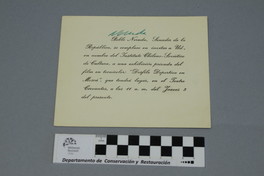 Pablo Neruda, Senador de la
República se complace en invitar a Ud.,
en nombre del Instituto Chileno-Soviético
de Cultura, a una exhibición privada del
film en tecnicolor "Desfile Deportivo en
Moscú", que tendrá lugar, en el Teatro
Cervantes, a las 11 a. m. del Jueves 3
del presente.
Departamento de Conservación y Restauración